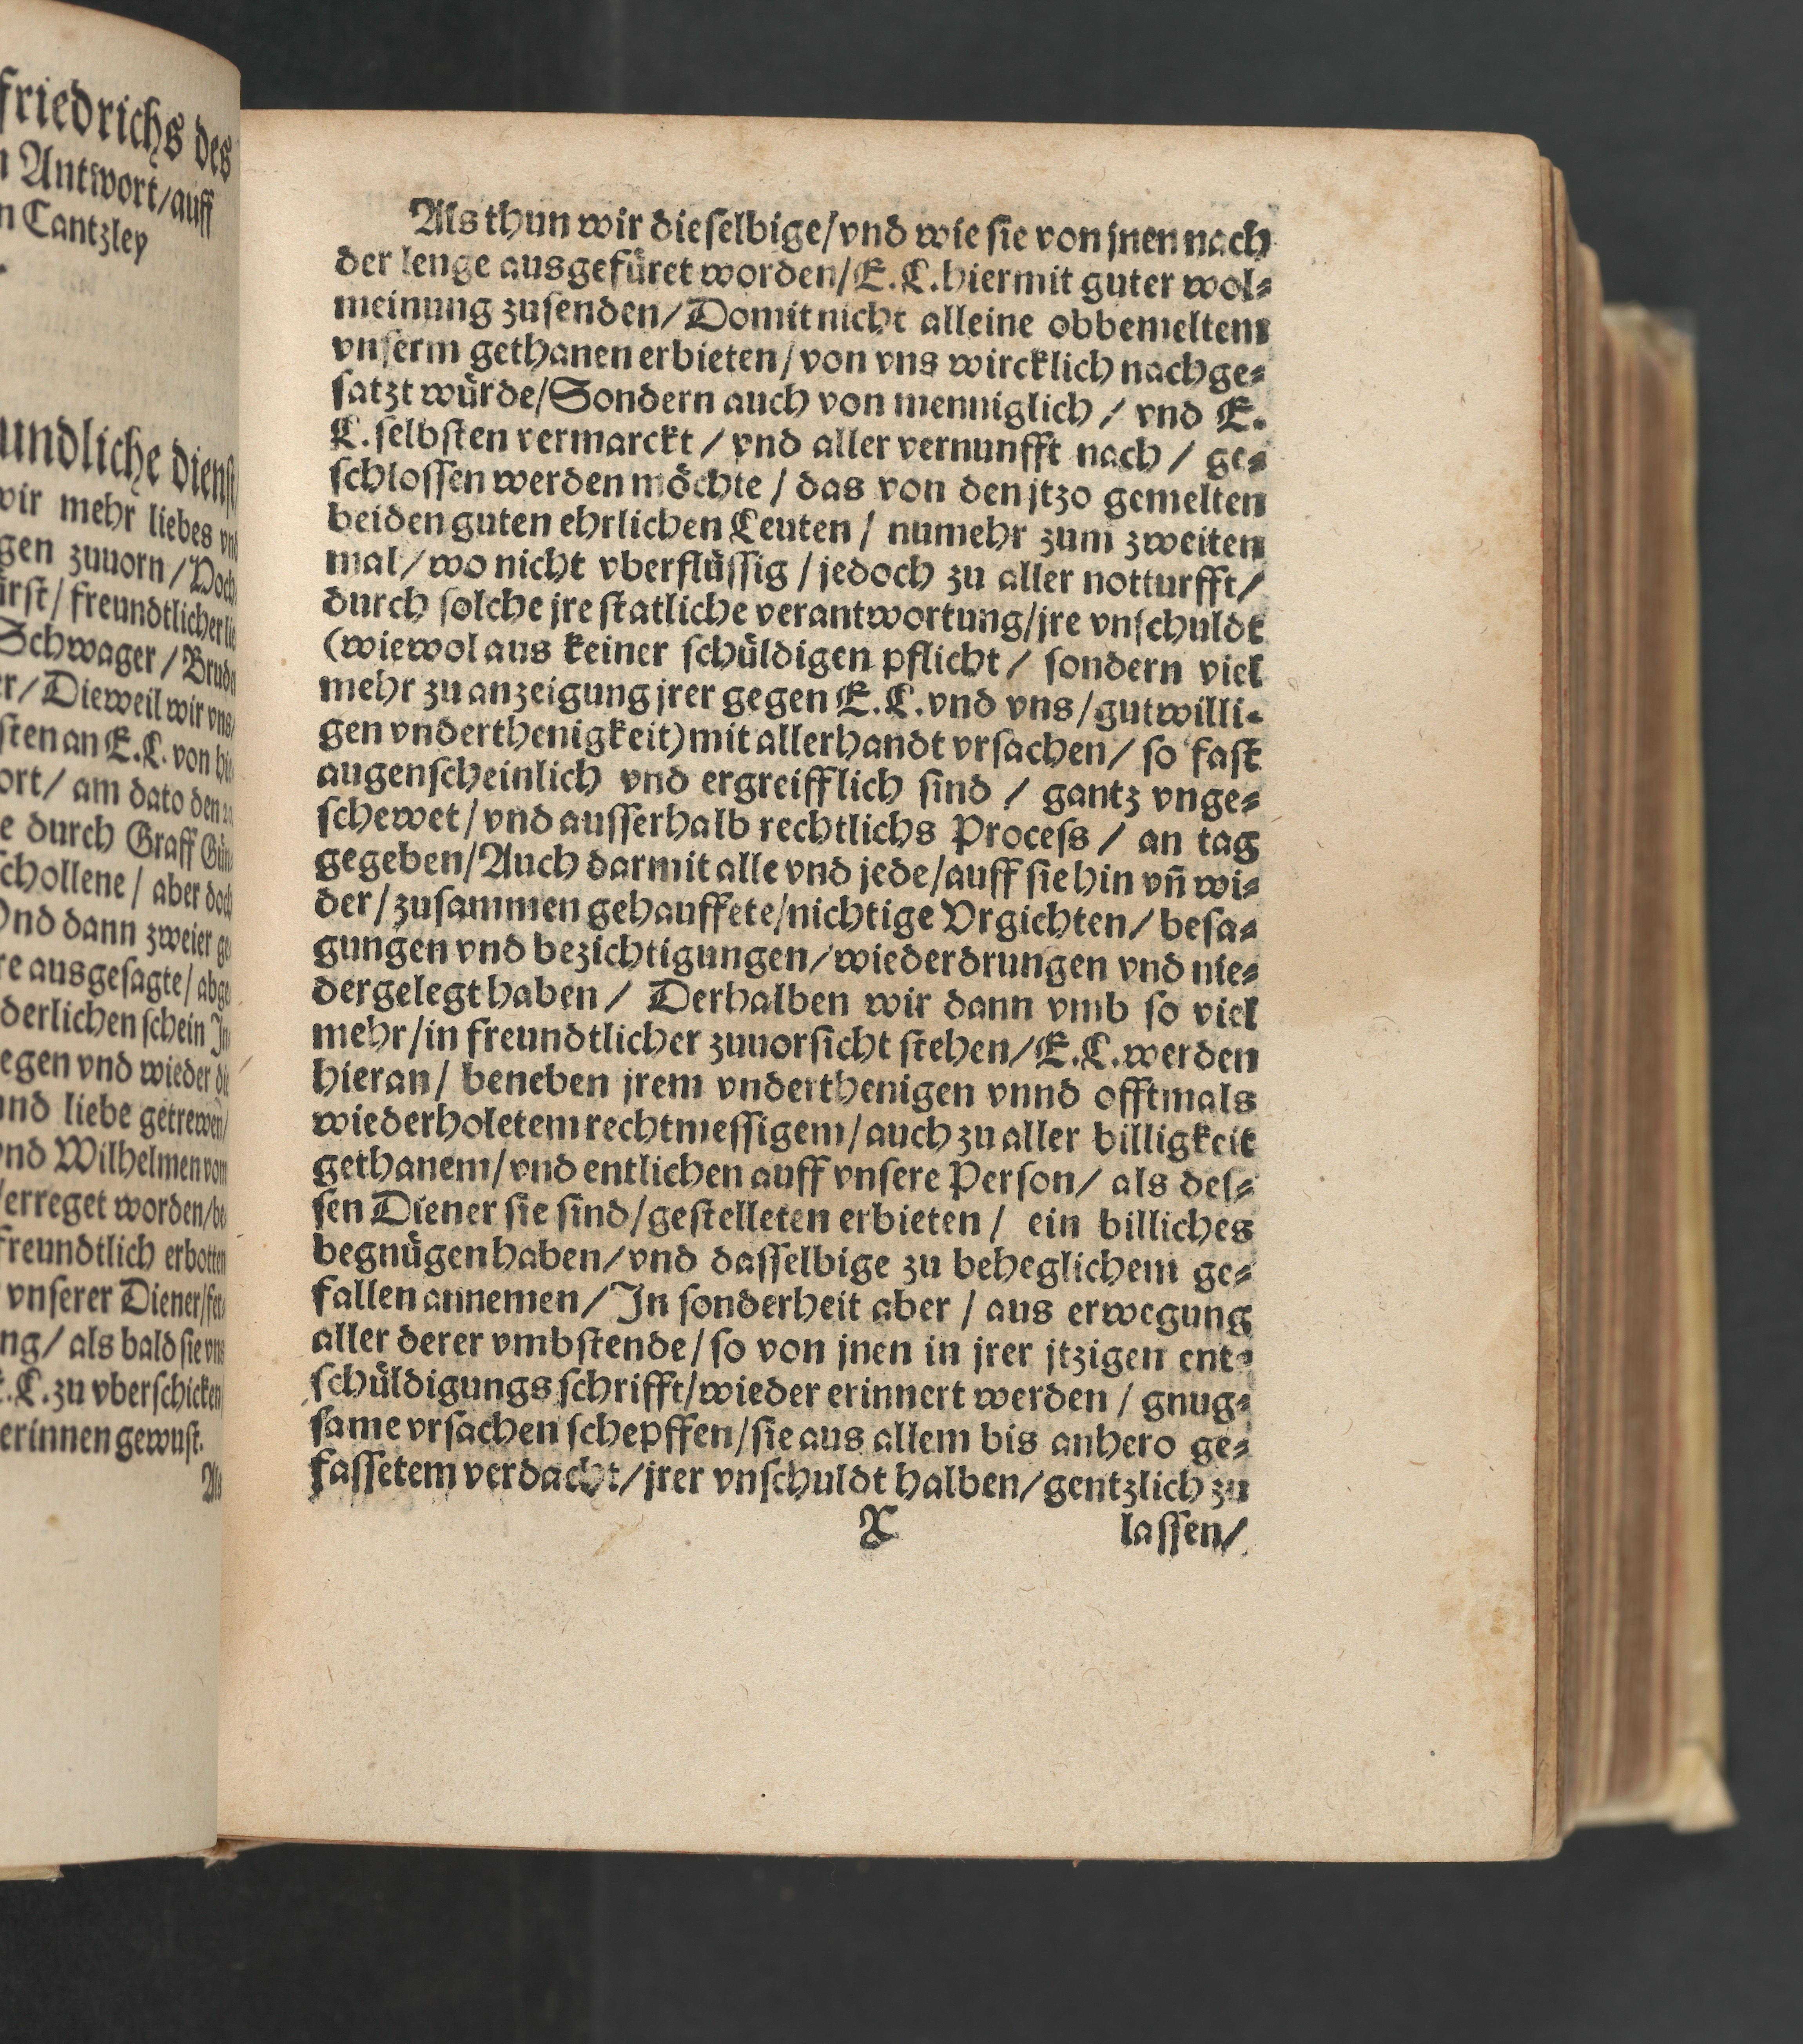 friedrichs des
Antwort/auff
Cantzley
undliche dienst
wir mehr liebes vnd
gen zuuorn/Hoch
ürst/ freundtlicher lie
Schwager/Brude
er/Dieweil wir vns
sten an E.L. von
ort/ am dato den
e durch Graff Gün
schollene/ aber doch
Vnd dann zweier ge
re ausgesagte/abge
derlichen schein
egen vnd wieder die
und liebe getrewen/
vnd Wilhelmen vom
erreget worden/be
freundtlich erbotten
vnserer Diener/
ng/ als bald sie vns
L.zu vberschicken
erinnen gewust.
Als
Als thun wir dieselbige/vnd wie sie von jnen nach
der lenge ausgefüret worden/E.L.hiermit guter wol⸗
meinung zusenden/Domit nicht alleine obbemeltem
vnserm gethanen erbieten/von vns wircklich nachge⸗
satzt würde/Sondern auch von menniglich/ vnd E.
L.selbsten vermarckt/vnd aller vernunfft nach/ ge⸗
schlossen werden möchte/das von den jtzo gemelten
beiden guten ehrlichen Leuten/ numehr zum zweiten
mal/wo nicht vberflüssig/jedoch zu aller notturfft/
durch solche jre statliche verantwortung/jre vnschuldt
(wiewol aus keiner schüldigen pflicht/ sondern viel
mehr zu anzeigung jrer gegen E.L.vnd vns/gutwilli⸗
gen vnderthenigkeit)mit allerhandt vrsachen/ so fast
augenscheinlich vnd ergreifflich sind/ gantz vnge⸗
schewet/vnd ausserhalb rechtlichs Process/ an tag
gegeben/Auch darmit alle vnd jede/auff sie hin vñ wi⸗
der/zusammen gehauffete/nichtige Vrgichten/besa⸗
gungen vnd bezichtigungen/wiederdrungen vnd nie⸗
dergelegt haben/ Derhalben wir dann vmb so viel
mehr/in freundtlicher zuuorsicht stehen/E.L.werden
hieran/ beneben jrem vnderthenigen vnnd offtmals
wiederholetem rechtmessigem/auch zu aller billigkeit
gethanem/vnd entlichen auff vnsere Person/ als des⸗
sen Diener sie sind/gestelleten erbieten/ ein billiches
begnügen haben/vnd dasselbige zu beheglichem ge⸗
fallen annemen/In sonderheit aber/aus erwegung
aller derer vmbstende/so von jnen in jrer jtzigen ent⸗
schüldigungs schrifft/wieder erinnert werden/ gnug⸗
same vrsachen schepffen/sie aus allem bis anhero ge⸗
fassetem verdacht/jrer vnschuldt halben/gentzlich zu
X lassen/